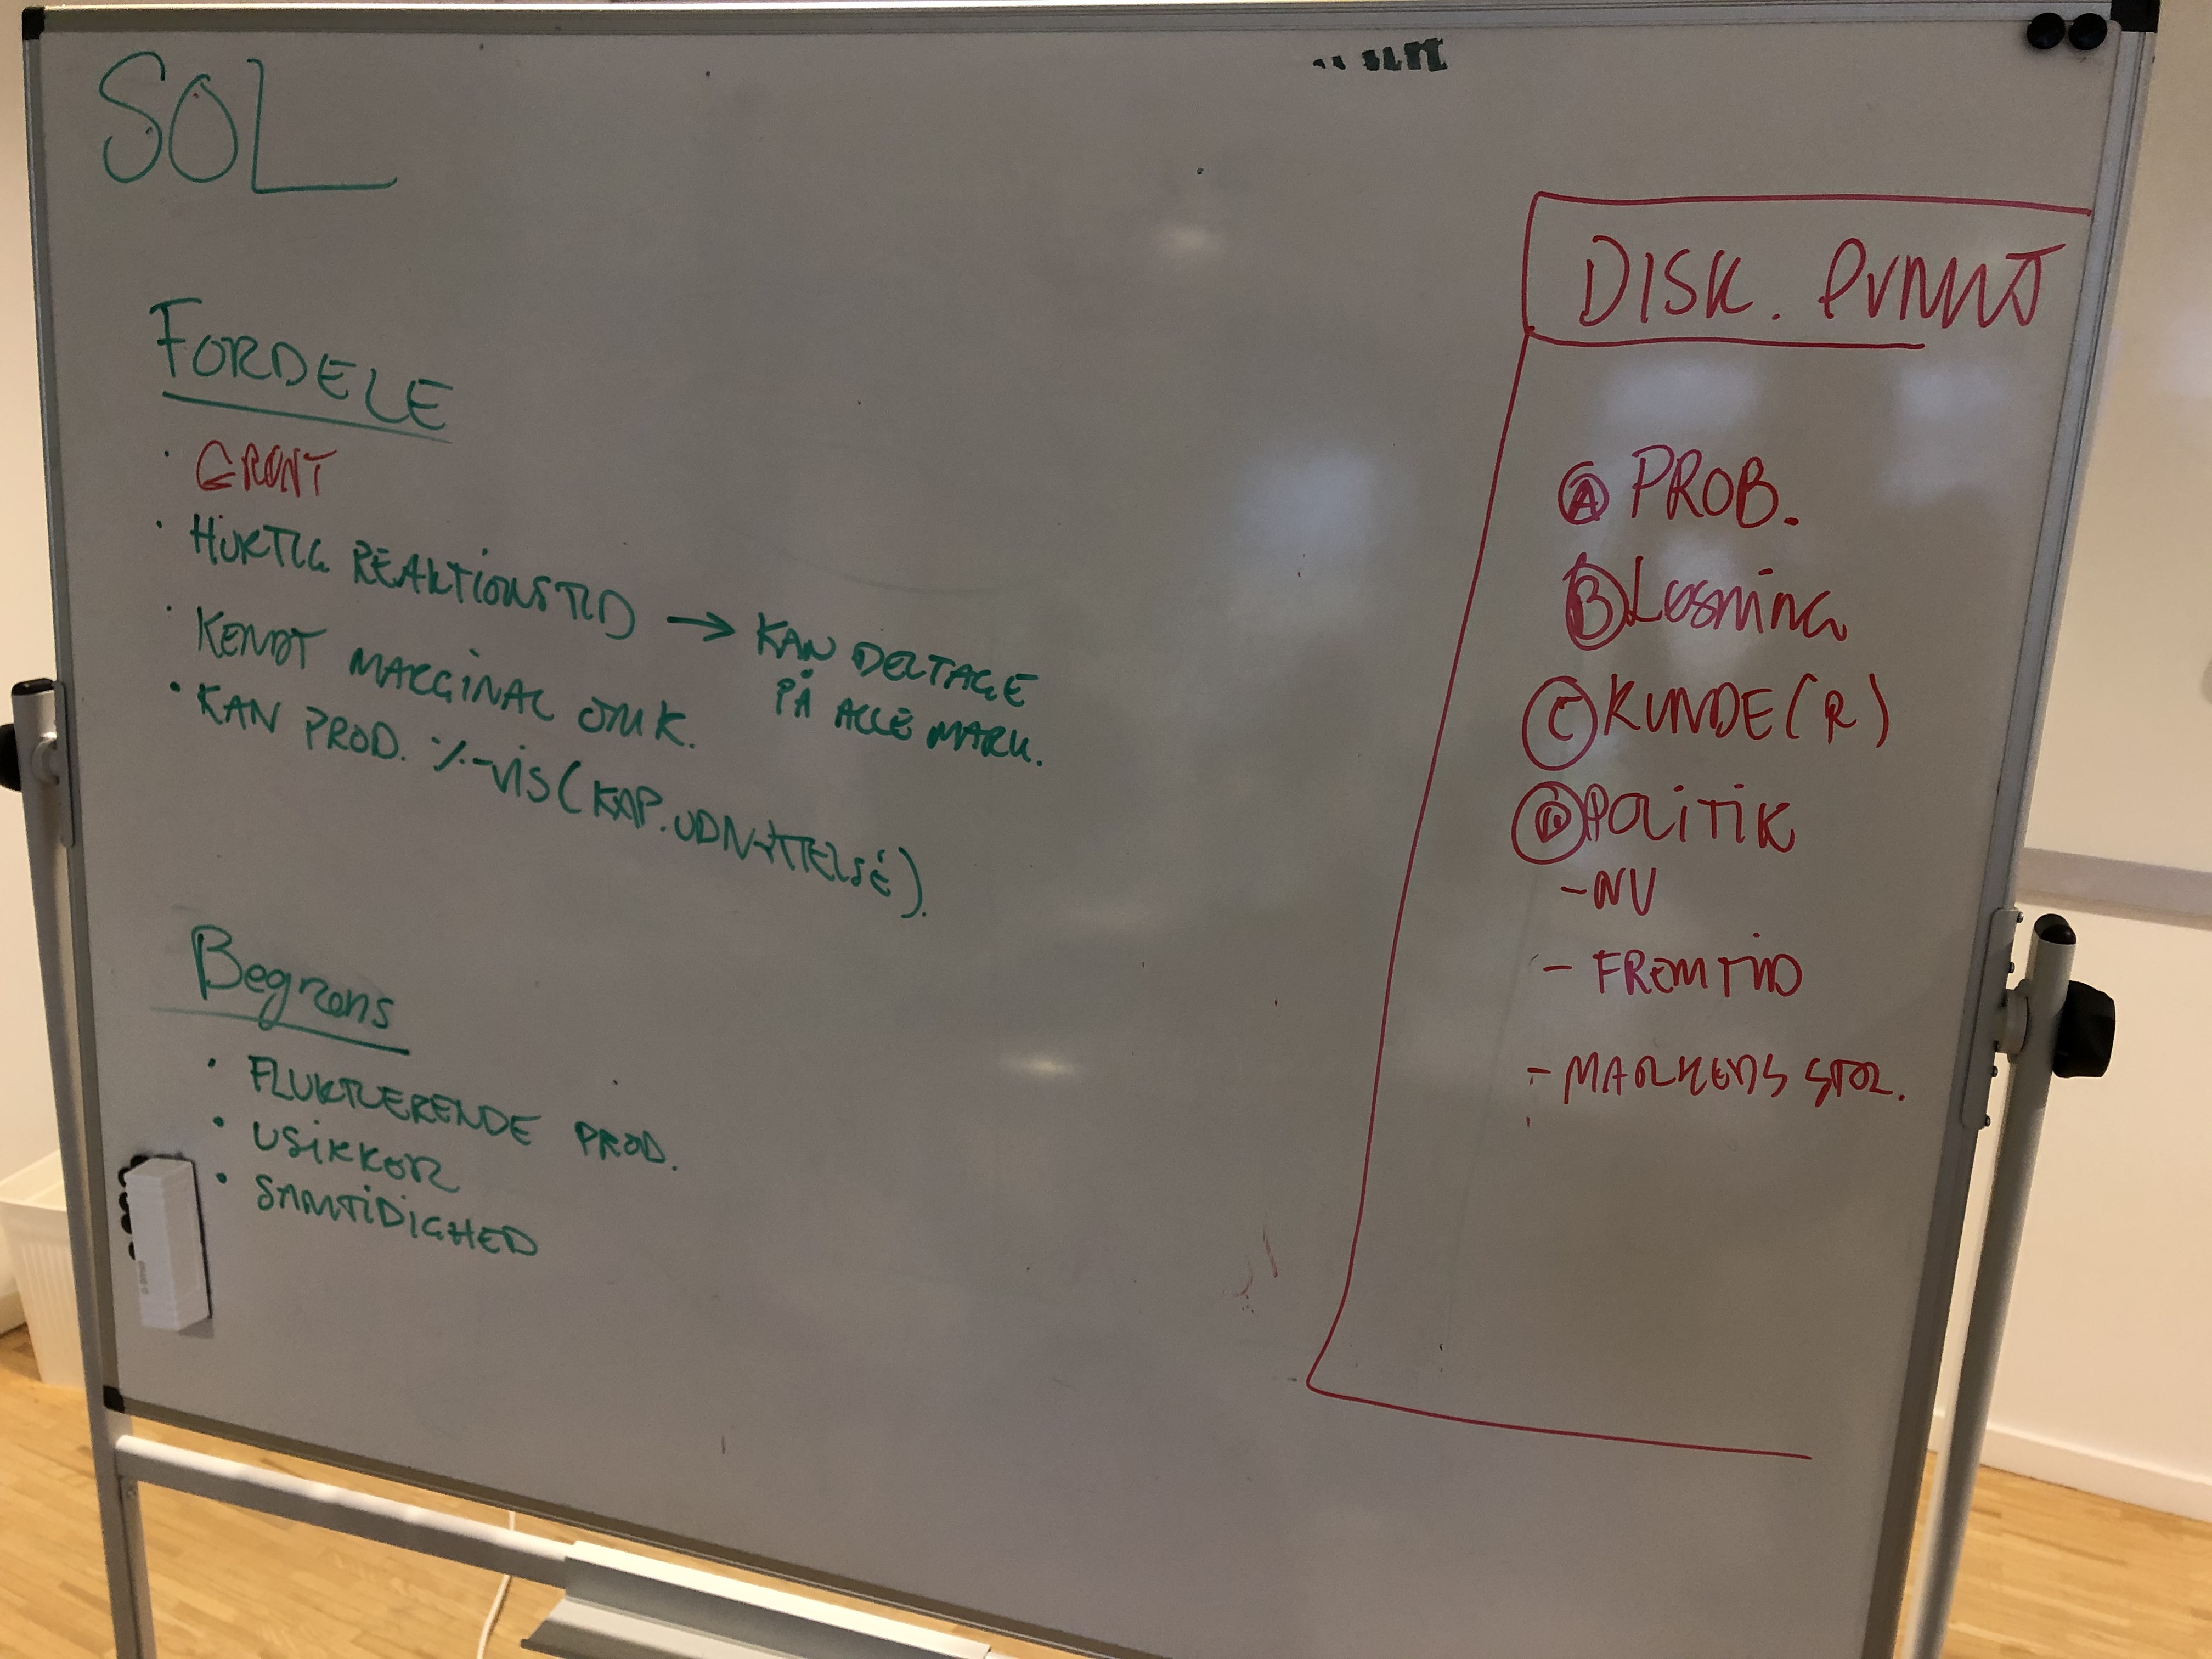 SOL
FORDELE
· GRØNT
· HURTIG REAKTIONSTID → KAN DELTAGE
PÅ ALLE MARK.
· KENDT MARGINAL OMK.
· KAN PROD. %-VIS (KAP. UDNYTTELSE).
Begræns
· FLUKTUERENDE PROD.
· USIKKER
· SAMTIDIGHED
DISK. PUNKT
A PROB.
B Løsning
C KUNDE(R)
D POLITIK
- NU
- FREMTID
- MARKEDS STØR.